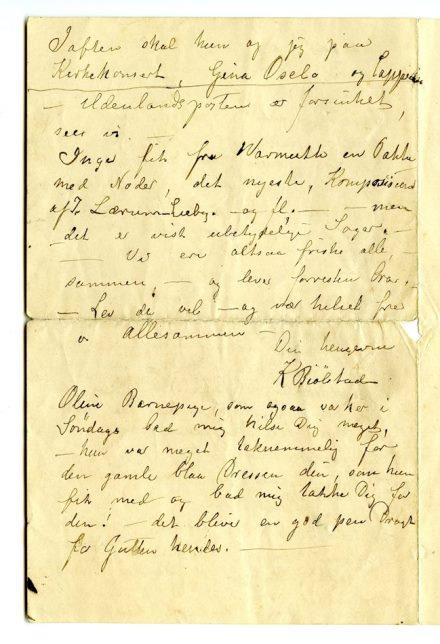 Iaften skal hun og jeg paa
Kirkekonsert, Gina Oselo og
– Udenlandsposten er forsinket,
sees vi. –
Inge fik fra Warmuth en Pakke
med Noder, det nyeste,
af Lærum-Lieby. – og fl. – – men
det er vist ubetydelige Sager. –
– Vi ere altsaa friske alle
sammen, – og lever forresten bra. –
– Lev du vel – og vær hilset fra
os allesammen –
Din hengivne
K Biölstad
Oline Barnepige, som ogsaa var her i
Søndags bad mig hilse Dig meget,
– hun var meget taknemmelig for
den gamle blaa Dressen din, som hun
fik med og bad mig takke Dig for
den! – det bliver en god pen Dragt
for Gutten hendes. –